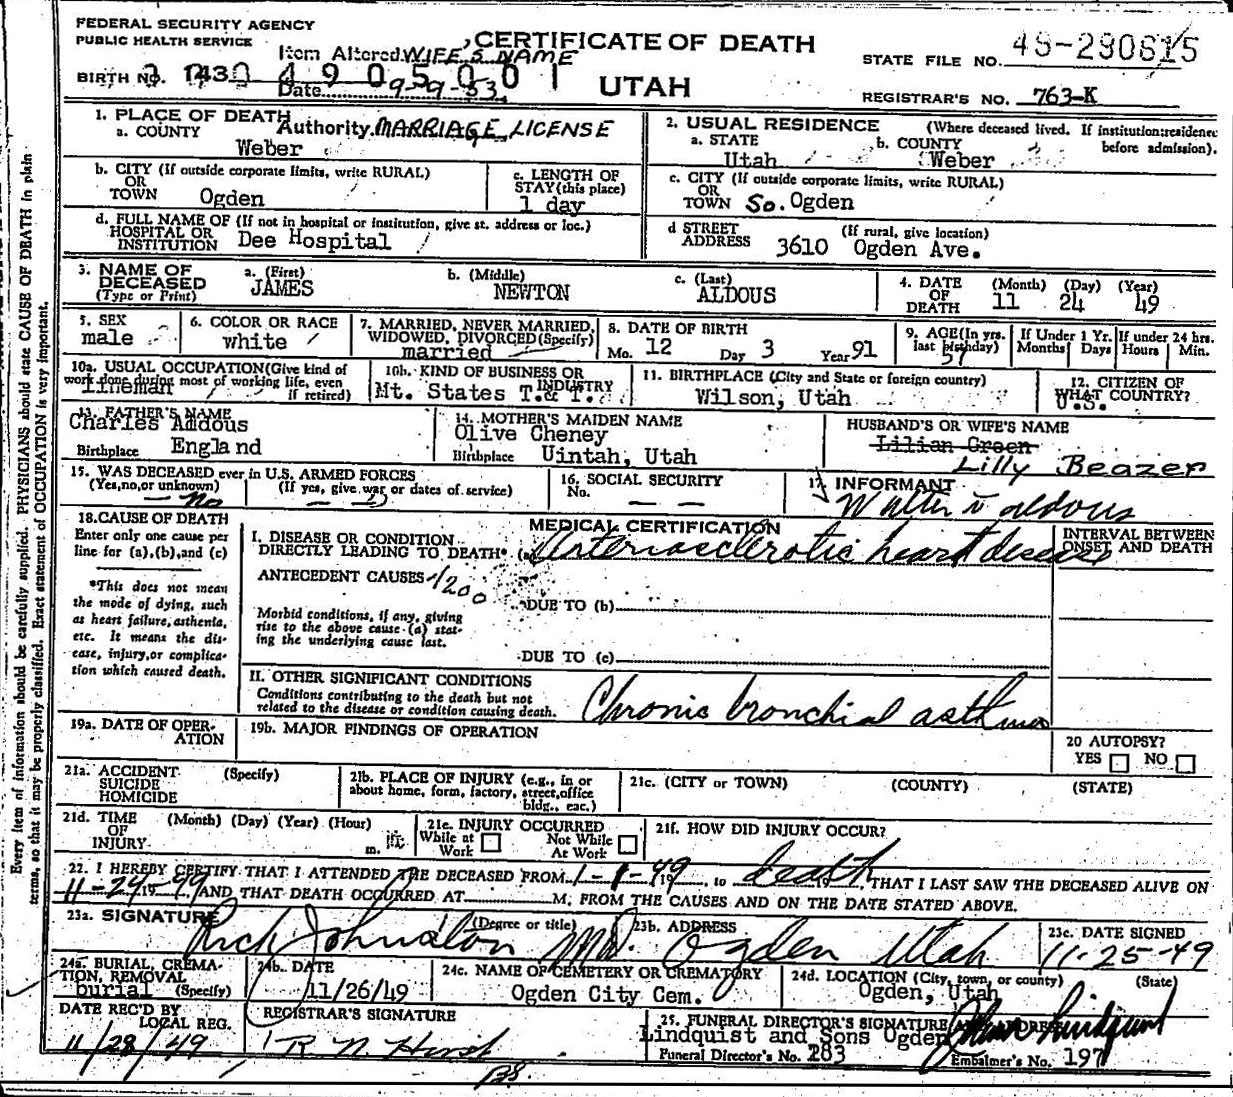 FEDERAL SECURITY AGENCY
PUBLIC HEALTH SERVICE
CERTIFICATE OF DEATH
UTAH
Item Altered WIFE'S NAME
Date 9-9-53
Authority MARRIAGE LICENSE
BIRTH NO.
4905001
STATE FILE NO. 49-290615
REGISTRAR'S NO. 763-K
1. PLACE OF DEATH
a. COUNTY
Weber
2. USUAL RESIDENCE (Where deceased lived. If institution:residence before admission).
a. STATE Utah
b. COUNTY Weber
b. CITY (If outside corporate limits, write RURAL)
OR
TOWN Ogden
c. LENGTH OF
STAY(this place)
1 day
c. CITY (If outside corporate limits, write RURAL)
OR
TOWN So. Ogden
d. FULL NAME OF (If not in hospital or institution, give st. address or loc.)
HOSPITAL OR
INSTITUTION Dee Hospital
d STREET (If rural, give location)
ADDRESS 3610 Ogden Ave.
3. NAME OF
DECEASED
(Type or Print)
a. (First) JAMES
b. (Middle) NEWTON
c. (Last) ALDOUS
4. DATE
OF
DEATH
(Month) (Day) (Year)
11 24 49
5. SEX
male
6. COLOR OR RACE
white
7. MARRIED, NEVER MARRIED,
WIDOWED, DIVORCED(Specify)
married
8. DATE OF BIRTH
Mo. 12 Day 3 Year 91
9. AGE(In yrs.
last birthday)
57
If Under 1 Yr.
Months Days
If under 24 hrs.
Hours Min.
10a. USUAL OCCUPATION(Give kind of
work done during most of working life, even
if retired)
Lineman
10b. KIND OF BUSINESS OR
INDUSTRY
Mt. States T.& T.
11. BIRTHPLACE (City and State or foreign country)
Wilson, Utah
12. CITIZEN OF
WHAT COUNTRY?
U.S.
13. FATHER'S NAME
Charles Aldous
Birthplace England
14. MOTHER'S MAIDEN NAME
Olive Cheney
Birthplace Uintah, Utah
HUSBAND'S OR WIFE'S NAME
Lilian Green
Lilly Beazer
15. WAS DECEASED ever in U.S. ARMED FORCES
(Yes,no,or unknown) (If yes, give war or dates of service)
- No - -
16. SOCIAL SECURITY
No. - -
17. INFORMANT
Walter v aldous
18.CAUSE OF DEATH
Enter only one cause per
line for (a),(b),and (c)
*This does not mean
the mode of dying, such
as heart failure, asthenia,
etc. It means the dis-
ease, injury,or complica-
tion which caused death.
MEDICAL CERTIFICATION
INTERVAL BETWEEN
ONSET AND DEATH
I. DISEASE OR CONDITION
DIRECTLY LEADING TO DEATH* (a) Arteriosclerotic heart disease
ANTECEDENT CAUSES 4200
Morbid conditions, if any, giving
rise to the above cause (a) stat-
ing the underlying cause last.
DUE TO (b)
DUE TO (c)
II. OTHER SIGNIFICANT CONDITIONS
Conditions contributing to the death but not
related to the disease or condition causing death.
Chronic bronchial asthma
19a. DATE OF OPER-
ATION
19b. MAJOR FINDINGS OF OPERATION
20 AUTOPSY?
YES NO
21a. ACCIDENT (Specify)
SUICIDE
HOMICIDE
21b. PLACE OF INJURY (e.g., in or
about home, form, factory, street,office
bldg., eac.)
21c. (CITY or TOWN) (COUNTY) (STATE)
21d. TIME (Month) (Day) (Year) (Hour)
OF
INJURY. m.
21e. INJURY OCCURRED
While at Work
Not While At Work
21f. HOW DID INJURY OCCUR?
22. I HEREBY CERTIFY THAT I ATTENDED THE DECEASED FROM 1-1-49 19 , to death 19 , THAT I LAST SAW THE DECEASED ALIVE ON
11-24-49 19 AND THAT DEATH OCCURRED AT M, FROM THE CAUSES AND ON THE DATE STATED ABOVE.
23a. SIGNATURE (Degree or title)
Rich Johnston MD.
23b. ADDRESS
Ogden Utah
23c. DATE SIGNED
11-25-49
24a. BURIAL, CREMA-
TION, REMOVAL
burial (Specify)
24b. DATE
11/26/49
24c. NAME OF CEMETERY OR CREMATORY
Ogden City Cem.
24d. LOCATION (City, town, or county) (State)
Ogden, Utah
DATE REC'D BY
LOCAL REG.
11/28/49
REGISTRAR'S SIGNATURE
25. FUNERAL DIRECTOR'S SIGNATURE
Lindquist and Sons Ogden
Funeral Director's No. 283
Embalmer's No. 197
Every item of information should be carefully supplied. PHYSICIANS should state CAUSE OF DEATH in plain
terms, so that it may be properly classified. Exact statement of OCCUPATION is very important.